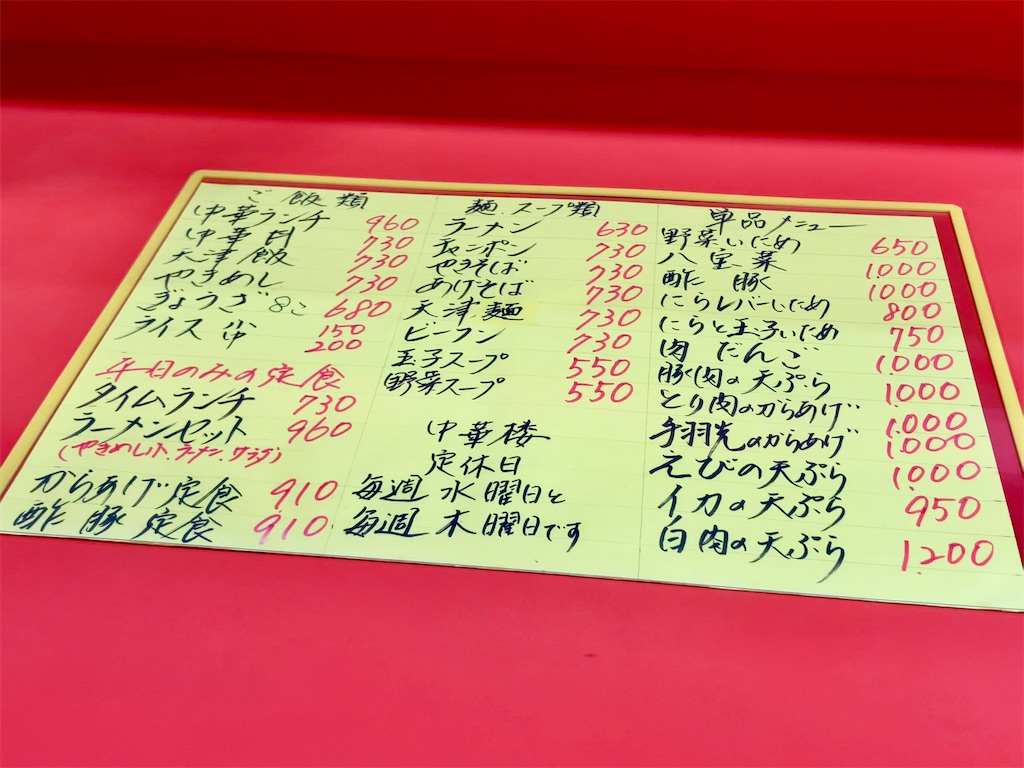 ご飯類
中華ランチ 960
中華丼 730
天津飯 730
やきめし 730
ぎょうざ 8コ 680
ライス 小 150
中 200
平日のみの定食
タイムランチ 730
ラーメンセット 960
(やきめし小、ラーメン、サラダ)
からあげ定食 910
酢豚定食 910
麺.スープ類
ラーメン 630
チャンポン 730
やきそば 730
あげそば 730
天津麺 730
ビーフン 730
玉子スープ 550
野菜スープ 550
中華楼
定休日
毎週水曜日と
毎週木曜日です
単品メニュー
野菜いため 650
八宝菜 1,000
酢豚 1,000
にらレバーいため 800
にらと玉子いため 750
肉だんご 1,000
豚肉の天ぷら 1,000
とり肉のからあげ 1,000
手羽先のからあげ 1,000
えびの天ぷら 1,000
イカの天ぷら 950
白肉の天ぷら 1,200